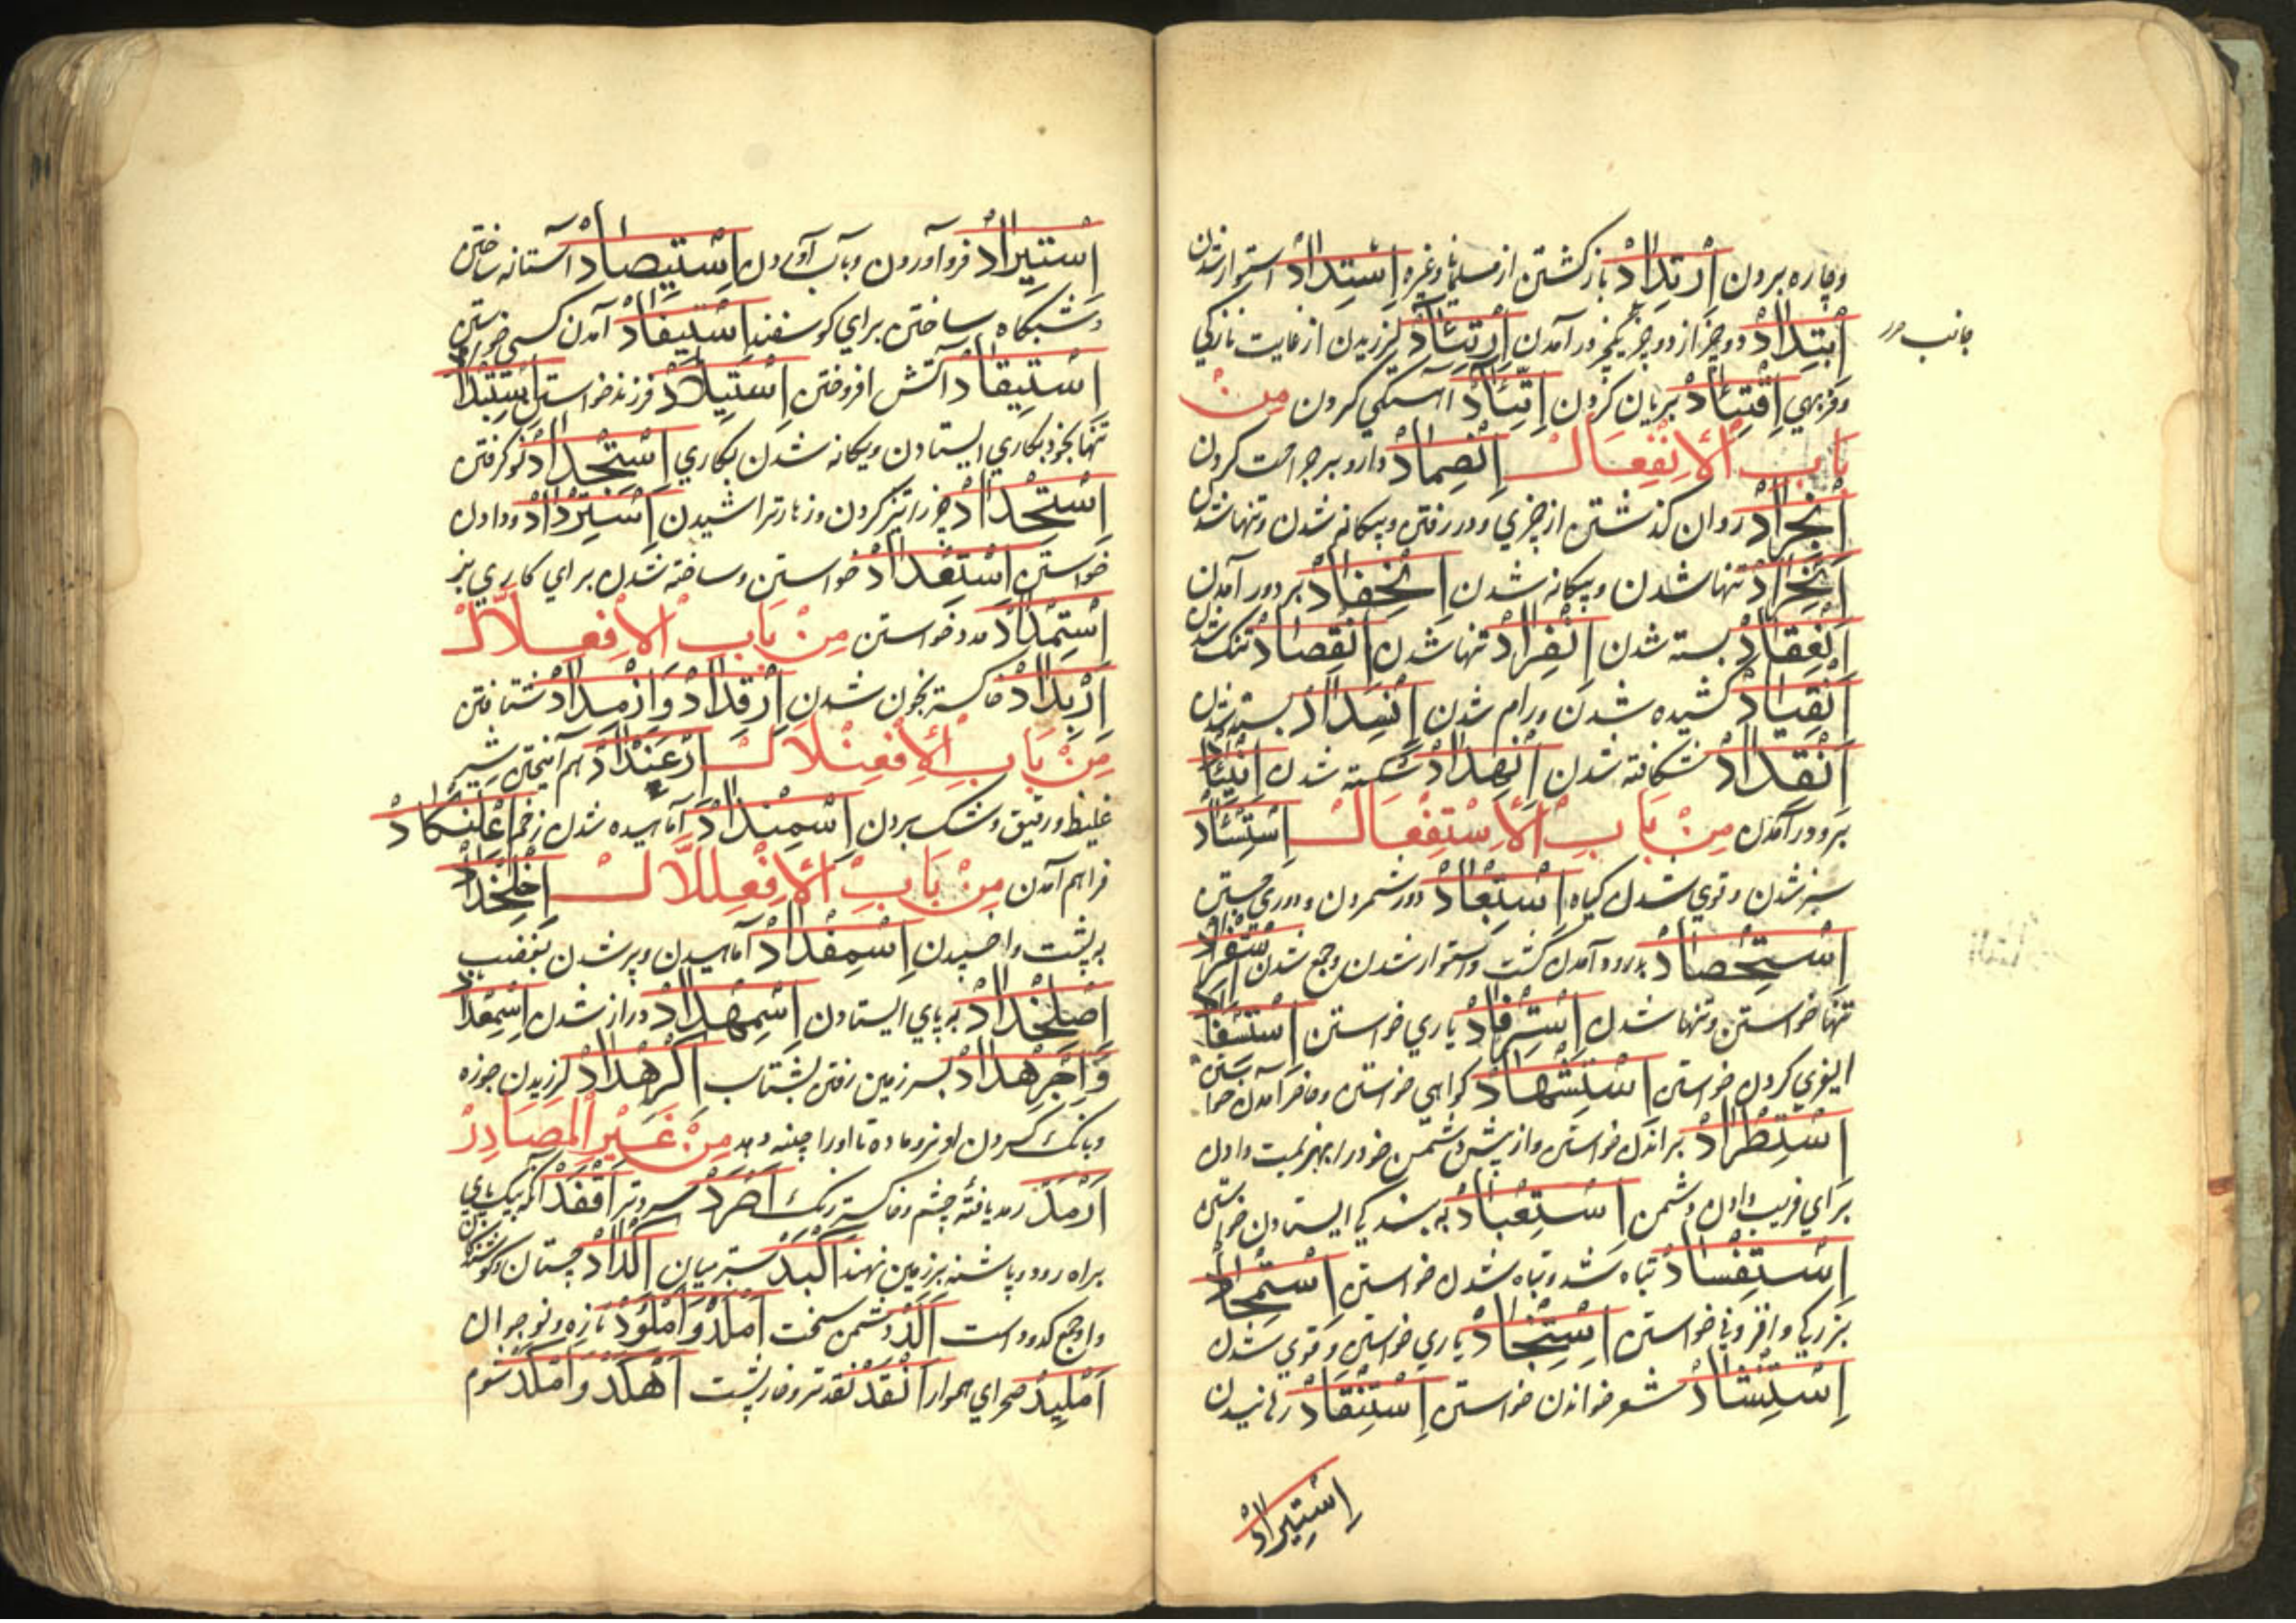 وچاره بردن اِرْتِدَادْ بازگشتن از مسلمانی وغیره اِسْتِدَادْ استوار شدن
اِبْتِدَادْ دو چیز از دو چیز یکچیز در آمدن اِرْتِئَادْ لرزیدن از غایت نازکی
جانب مرر
وفربهی اِفْتِئَادْ بریان کردن اِتِّئَادْ آهستگی کردن مِنْ
بَابِ الْاِنْفِعَالْ اِنْضِمَادْ دارو بر جراحت کردن
اِنْجِرَادْ روان گذشتن از چیزی ودر رفتن ویگانه شدن وتنها شدن
اِنْخِرَادْ تنها شدن ویگانه شدن اِنْخِفَادْ بر دور آمدن
اِنْعِقَادْ بسته شدن اِنْفِرَادْ تنها شدن اِنْقِصَادْ تنک شدن
اِنْقِیَادْ کشیده شدن ورام شدن اِنْسِدَادْ بسته شدن
اِنْقِدَادْ شکافته شدن اِنْهِدَادْ شکسته شدن اِنْئِیَادْ
بر دور آمدن مِنْ بَابِ الْاِسْتِفْعَالْ اِسْتِئْسَادْ
سبز شدن وقوی شدن گیاه اِسْتِبْعَادْ دور شمردن ودوری جستن
اِسْتِحْصَادْ بدرود آمدن کشت واستوار شدن وجمع شدن اِسْتِفْرَادْ
تنها خواستن وتنها شدن اِسْتِرْفَادْ یاری خواستن اِسْتِسْفَادْ
کردن خواستن اِسْتِشْهَادْ گواهی خواستن وحاضر آمدن خواستن
اِسْتِطْرَادْ براندن خواستن واز پیش دشمن خود را بهزیمت دادن
برای فریب دادن دشمن اِسْتِعْبَادْ به بندگی ایستادن خواستن
اِسْتِفْسَادْ تباه شد وتباه شدن خواستن اِسْتِمْجَادْ
بزرگی وافزونی خواستن اِسْتِنْجَادْ یاری خواستن وقوی شدن
اِسْتِنْشَادْ شعر خواندن خواستن اِسْتِنْقَادْ رهانیدن
اِسْتِیرَادْ
اِسْتِیرَادْ فرو آوردن وبآب آوردن اِسْتِیصَادْ آستانه ساختن
وشبگاه ساختن برای گوسفند اِسْتِیفَادْ آمدن کسی خواستن
اِسْتِیقَادْ آتش افروختن اِسْتِیلَادْ فرزند خواستن اِسْتِبْدَادْ
تنها بخود بکاری ایستادن ویگانه شدن بکاری اِسْتِجْدَادْ نو گرفتن
اِسْتِحْدَادْ چیز را تیز کردن وزهار تراشیدن اِسْتِرْدَادْ وادادن
خواستن اِسْتِعْدَادْ خواستن وساخته شدن برای کاری نیز
اِسْتِمْدَادْ مدد خواستن مِنْ بَابِ الْاِفْعِلَالْ
اِرْبِدَادْ خاکستر بگون شدن اِرْقِدَادْ وَاِزْمِدَادْ شتافتن
مِنْ بَابِ الْاِفْعِنْلَالْ اِرْعَنْدَادْ بهم آمیختن شیر
غلیظ ورقیق وشک بردن اِسْمِنْدَادْ آماهیده شدن زخم اِعْلِنْکَادْ
فراهم آمدن مِنْ بَابِ الْاِفْعِلَّالْ اِجْلِخْدَادْ
به پشت واخسپیدن اِسْمِغْدَادْ آماهیدن وپر شدن بغضب
اِصْلِخْدَادْ به پای ایستادن اِسْمِهْدَادْ دراز شدن اِسْمِعْدَادْ
وَاِجْرِهْدَادْ بسر زمین رفتن بشتاب اِکْرِهْدَادْ لرزیدن جوزه
وبانگ کردن او نر وماده تا او را چینه دهد مِنْ غَیْرِ الْمَصَادِرْ
اَرْمَدْ رمد یافته چشم وخاکستر رنگ اَصْرَدْ سردتر اَقْفَدْ آنکه بیک پای
براه رود وپاشنه بر زمین ننهد اَکْبَدْ ستبر میان اَلْدَادْ
وا وجمع لدود است اَلَدّْ دشمن سخت اُمْلُدْ وَاُمْلُودْ تازه ونوجوان
اِمْلِیدْ صحرای هموار اَنْقَدْ نقدتر وخارپشت اَهْکَدْ وَاَمْکَدْ شوم